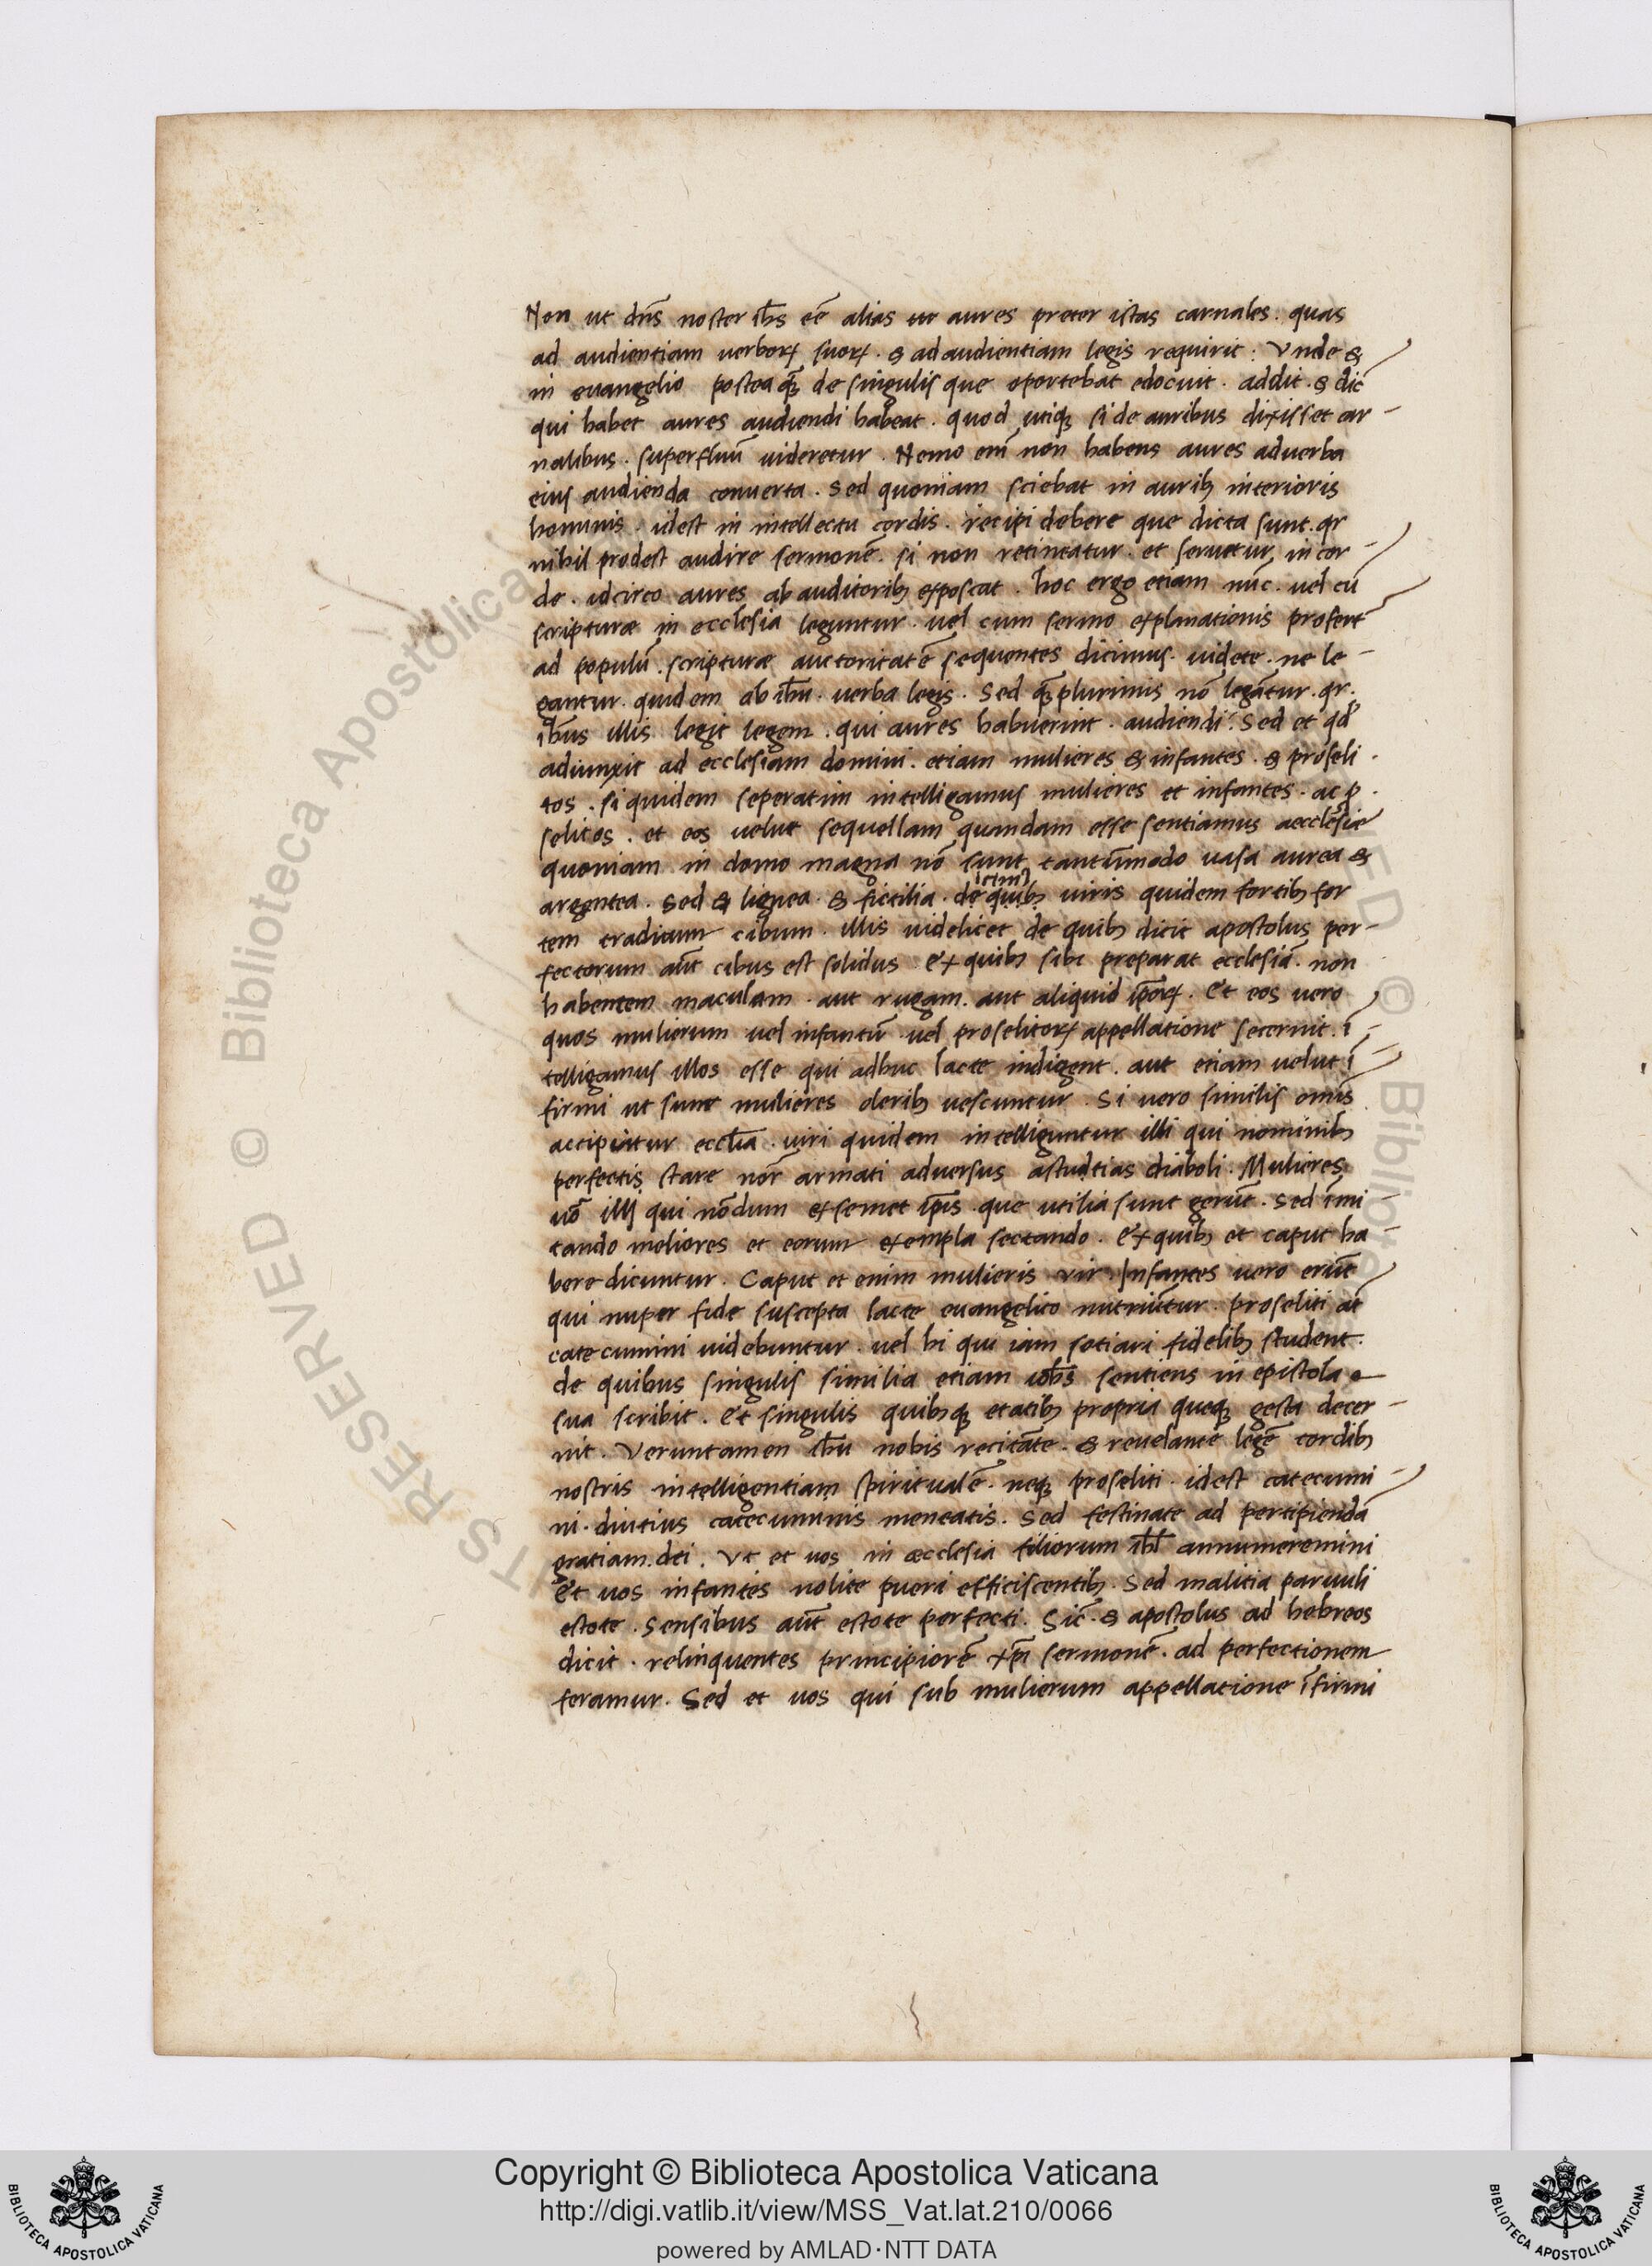 Non ut dn̄s noster ih̄s eē alias aures preter istas carnales. quas
ad audientiam uerborꝝ suorꝝ. & ad audientiam legis requirit: Vnde &
in euangelio posteaqꝫ̄ de singulis que oportebat edocuit. addit. & dic̄
qui habet aures audiendi habeat. quod utiqꝫ si de auribus dixisset car-
nalibus. superfluū uideretur. Nemo em̄ non habens aures ad uerba
eius audienda conuerta. sed quoniam sciebat in auribꝫ interioris
hominis. idest in intellectu cordis. recipi debere que dicta sunt. qr
nihil prodest audire sermonē. si non retineatur. et seruetur in cor-
de. idcirco aures ab auditoribꝫ exposcat. hoc ergo etiam nūc. uel cū
scripturæ in ecclesia leguntur. uel cum sermo explanationis profert
ad populū. scripturæ auctoritatē sequentes dicimus. uidete. ne le-
gantur quidem ab ih̄u. uerba legis. sed qꝫ̄ plurimis nō legāntur. qr.
ih̄us illis legit legem. qui aures habuerint. audiendi. Sed et qđ
adiunxit ad ecclesiam domini. etiam mulieres & infantes. & proseli.
tos. si quidem seperatim intelligamus mulieres et infantes. ac ꝓ.
selitos. et eos uelut sequellam quandam esse sentiamus aecclesie
quoniam in domo magna nō sunt tantūmodo uasa aurea &
argentea. sed & lignea. & fictilia. de quibꝫ uiris quidem fortibꝫ for
tem tradium cibum. illis uidelicet de quibꝫ dicit apostolus per-
fectorum aūt cibus est solidus. Ex quibꝫ sibi preparat ecclesiā. non
habentem maculam. aut rugam. aut aliquid ip̄orꝝ. Et eos uero
quos mulierum uel infantū uel proselitorꝝ appellatione secernit. ī-
telligamus illos esse qui adhuc lacte indigent. aut etiam uelut ī-
firmi ut sunt mulieres oleribꝫ uescuntur. Si uero similis omīs
accipiatur eccl̄ia. uiri quidem intelliguntur illi qui nominibꝫ
perfectis stare nōr armati aduersus astudtias diaboli. Mulieres
uō illi qui nōdum ex semet ip̄is. que utilia sunt gerūt. sed īmi-
tando meliores et eorum exempla sectando. Ex quibꝫ et caput ha-
bere dicuntur. Caput et enim mulieris vir. Infantes uero erūt
qui nuper fide suscepta lacte euangelico nutriūtur. proseliti āt
catecumini uidebuntur. uel hi qui iam sotiari fidelibꝫ student.
de quibus singulis similia etiam sentiens in epistola
sua scribit. Et singulis quibꝫqꝫ etatibꝫ propria queqꝫ gesta decer-
nit. Veruntamen ih̄u nobis recitāte. & reuelante legē cordibꝫ
nostris intelligentiam spiritualē. neqꝫ proseliti. idest catecumi-
ni. diutius catecuminis meneatis. sed festinate ad pertipiendā
gratiam. dei. Vt et uos in æcclesia filiorum ih̄l annumeremini
Et uos infantes nolite pueri efficiscentibꝫ. sed malitia paruuli
estote. sensibus aūt estote perfecti. Sic̄. & apostolus ad hebreos
dicit. relinquentes principiorē xp̄i sermonē. ad perfectionem
feramur. Sed et uos qui sub mulierum appellatione īfirmi
© Biblioteca Apostolica
Copyright © Biblioteca Apostolica Vaticana
http://digi.vatlib.it/view/MSS_Vat.lat.210/0066
powered by AMLAD·NTT DATA
BIBLIOTECA APOSTOLICA VATICANA
BIBLIOTECA APOSTOLICA VATICANA